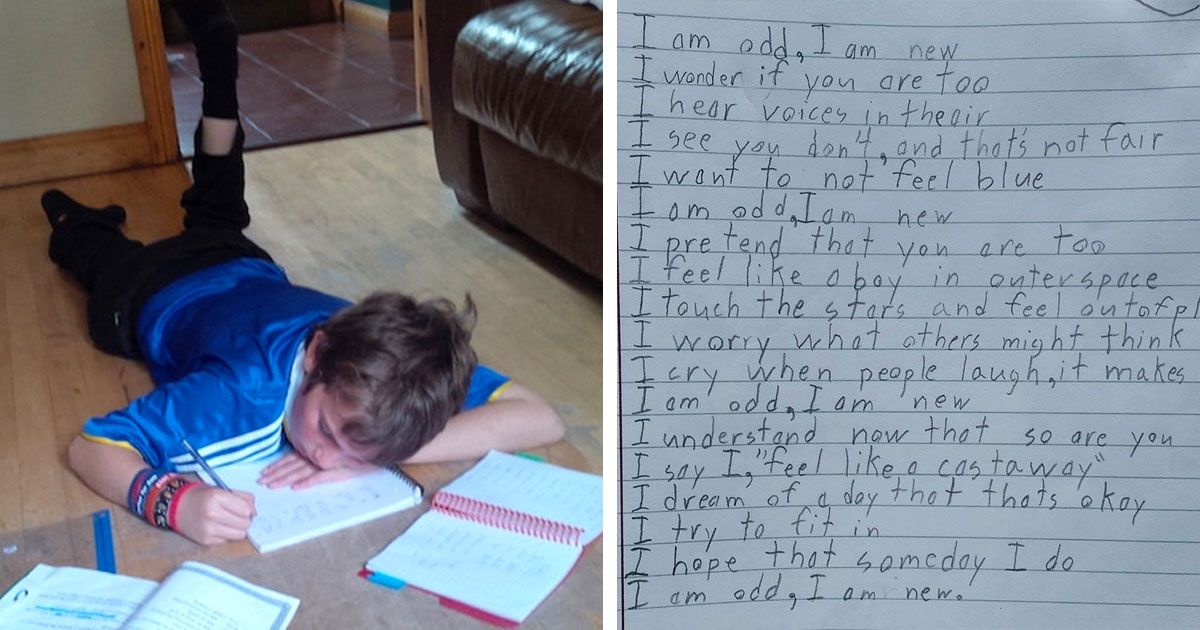 I am odd, I am new
I wonder if you are too
I hear voices in theair
I see you don't, and that's not fair
I want to not feel blue
I am odd, I am new
I pretend that you are too
I feel like a boy in outerspace
I touch the stars and feel outofpl
I worry what others might think
I cry when people laugh, it makes
I am odd, I am new
I understand now that so are you
I say I, "feel like a castaway"
I dream of a day that thats okay
I try to fit in
I hope that someday I do
I am odd, I am new.